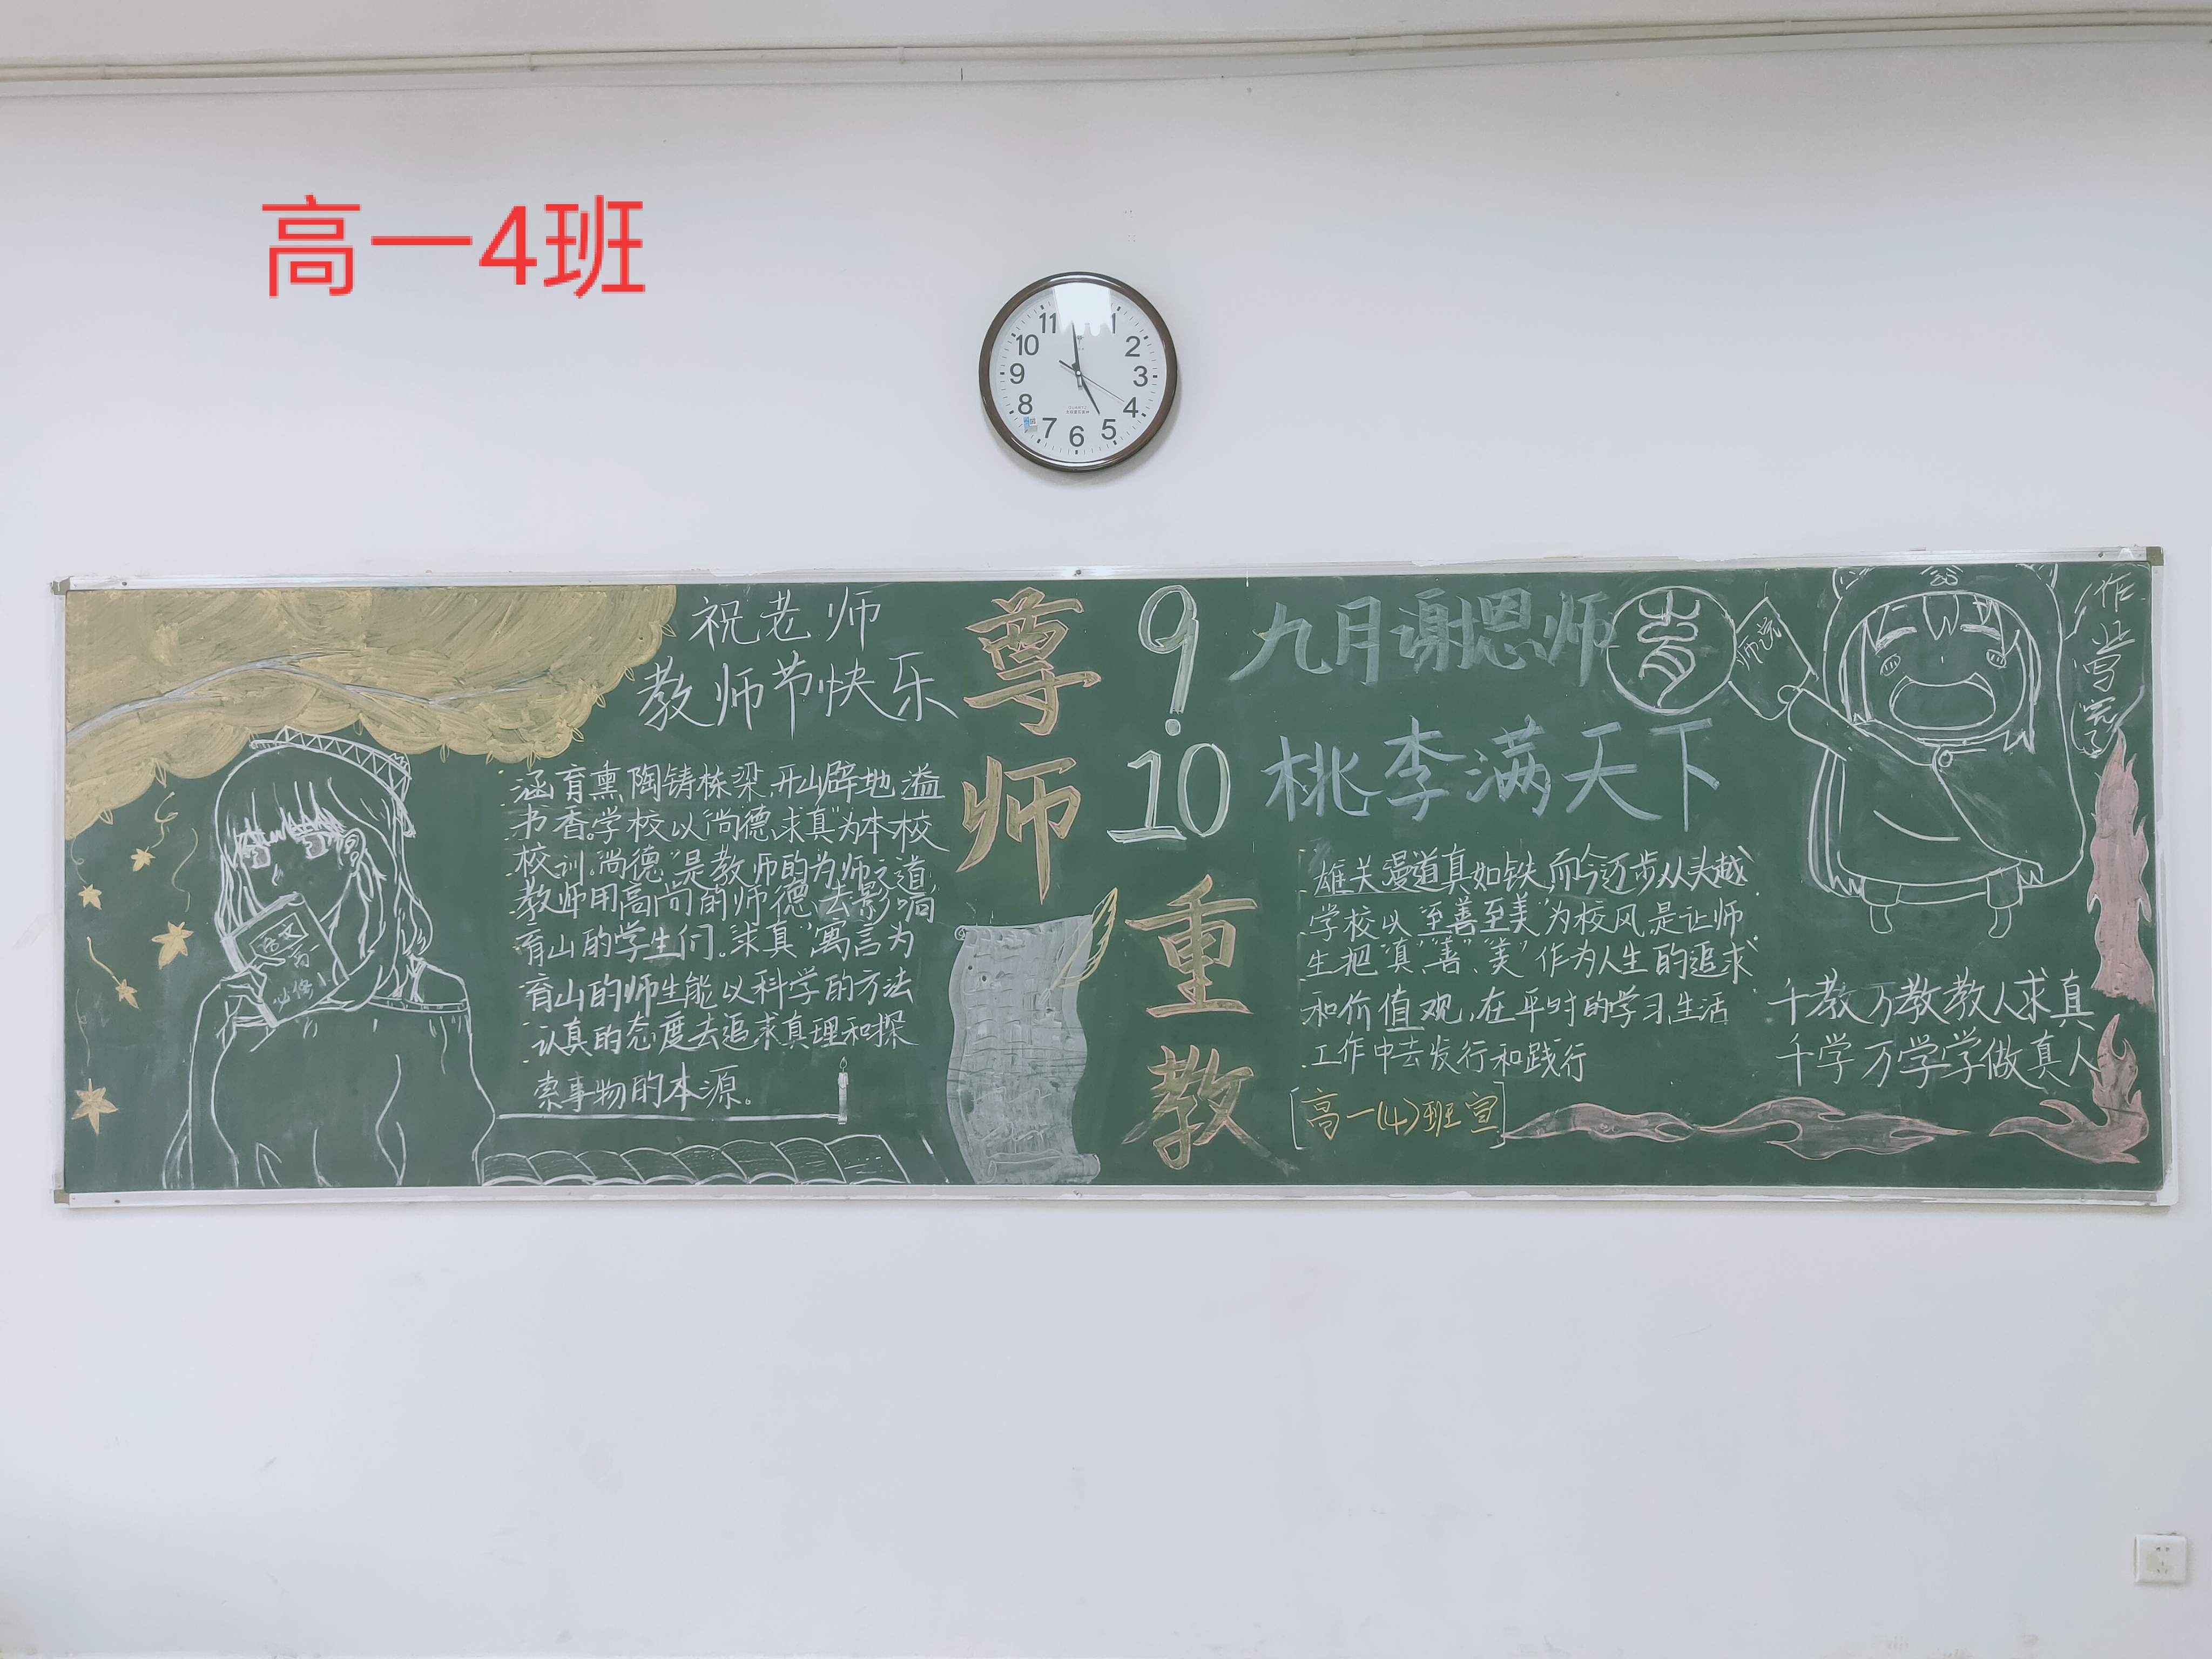 高一4班
11 1
10 2
9 3
8 4
7 6 5
QUARTZ
祝老师
教师节快乐
涵育熏陶铸栋梁,开山辟地溢
书香。学校以"尚德、求真"为本校
校训。"尚德"是教师的为师之道
教师用高尚的师德去影响
育山的学生们。"求真"寓言为
育山的师生能以科学的方法
认真的态度去追求真理和探
索事物的本源。
语文
必修
尊
师
重
教
9.
10
九月谢恩师
桃李满天下
雄关漫道真如铁,而今迈步从头越
学校以"至善至美"为校风,是让师
生把"真"、"善"、"美"作为人生的追求
和价值观,在平时的学习,生活
工作中去发行和践行
[高一(4)班宣]
育
作业写完了
千教万教教人求真
千学万学学做真人